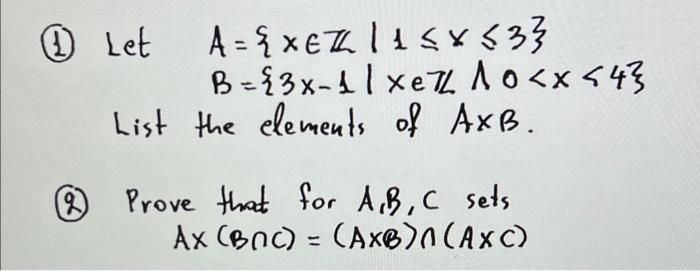 ① Let A = { x ∈ ℤ | 1 ≤ x ≤ 3 }
B = { 3x-1 | x ∈ ℤ ∧ 0 < x < 4 }
List the elements of A×B.
② Prove that for A,B,C sets
A×(B∩C) = (A×B)∩(A×C)